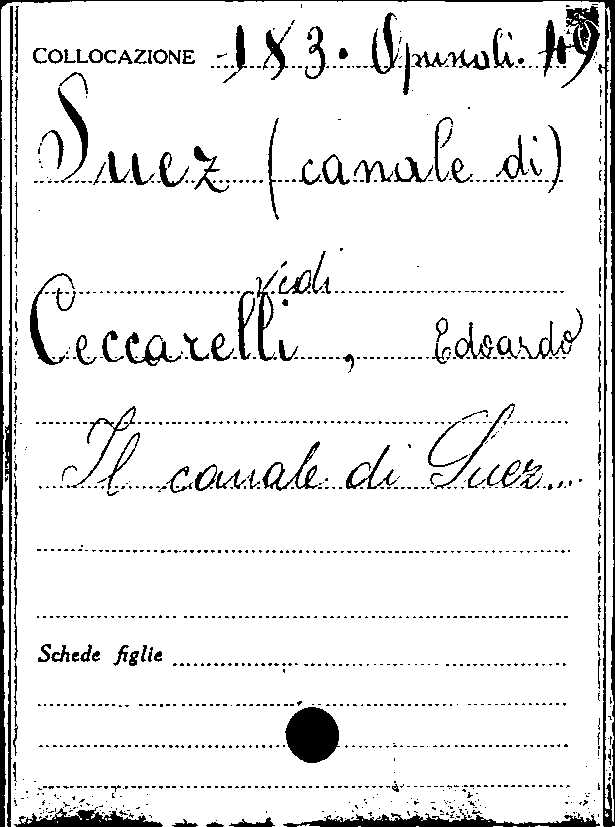 COLLOCAZIONE 183. Opuscoli. 49
Suez (canale di)
vedi
Ceccarelli, Edoardo
Il canale di Suez...
Schede figlie